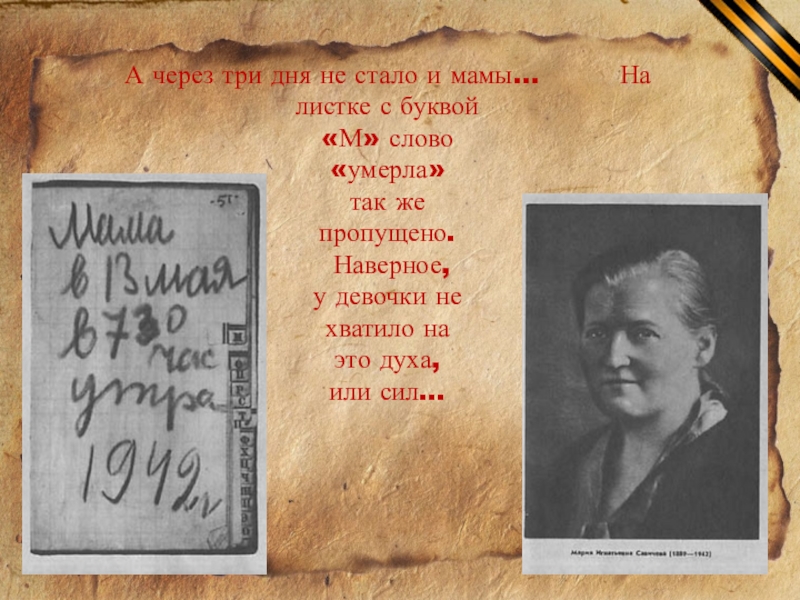 А через три дня не стало и мамы... На
листке с буквой
«М» слово
«умерла»
так же
пропущено.
Наверное,
у девочки не
хватило на
это духа,
или сил...
-51-
Мама
в 13 мая
в 730
час
утра
1942 г
Мария Игнатьевна Савичева (1889—1942)